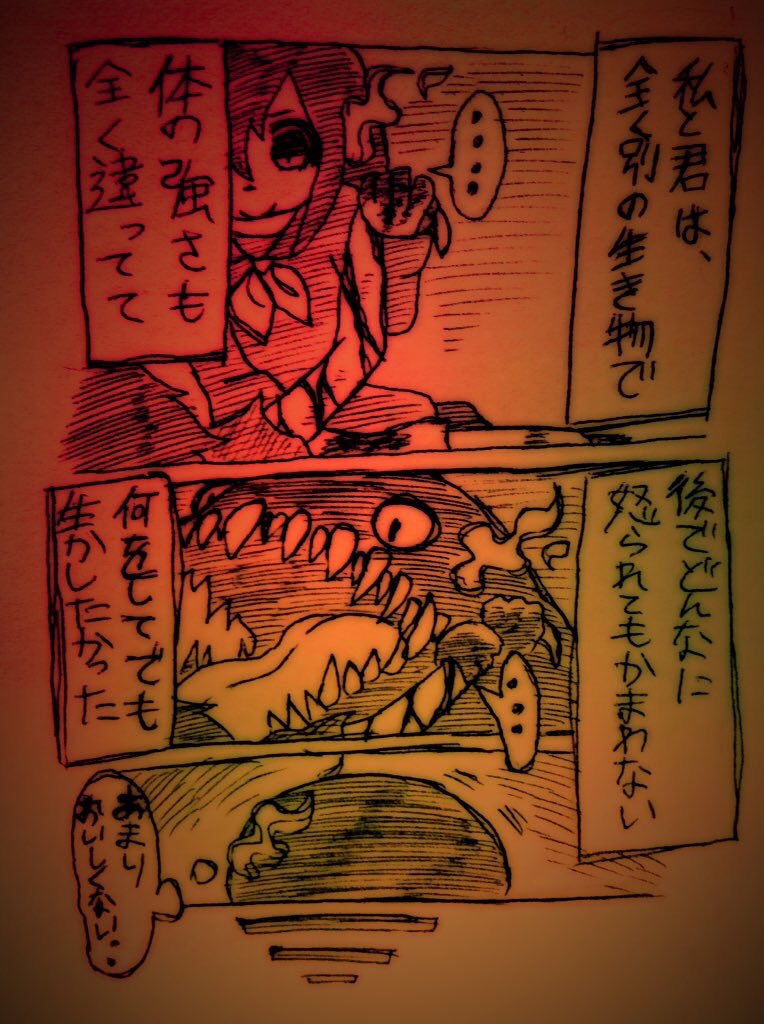 私と君は、
全く別の生き物で
・・・・
体の強さも
全く違ってて
後でどんなに
怒られてもかまわない
・・・
何をしてでも
生かしたかった
あまり
おいしくない・・